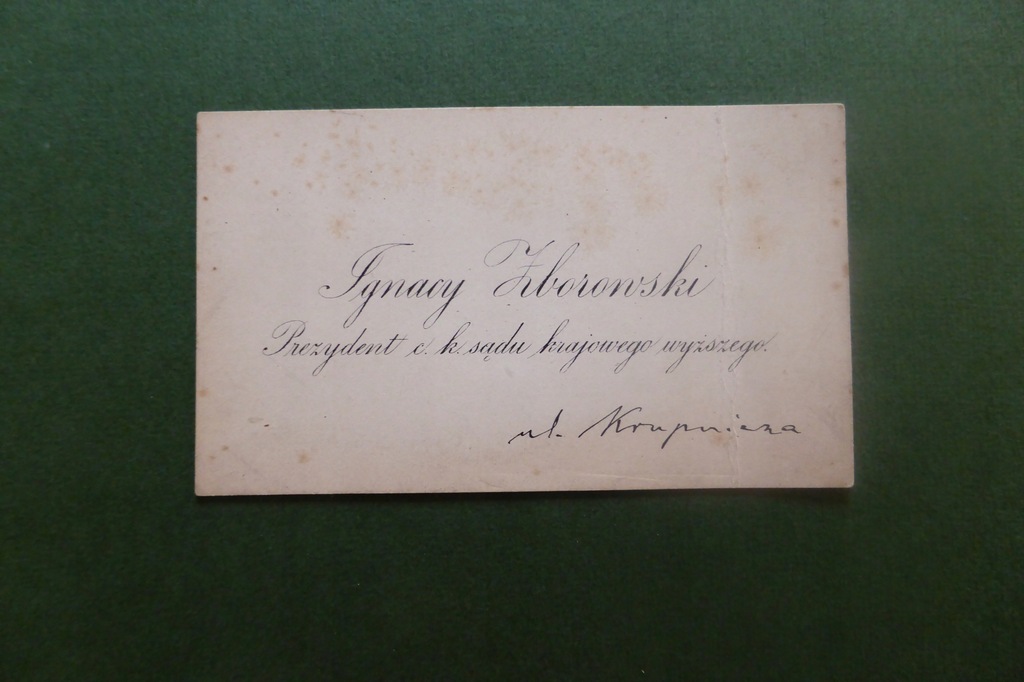 Ignacy Zborowski
Prezydent c. k. sądu krajowego wyższego.
ul. Krupnicza